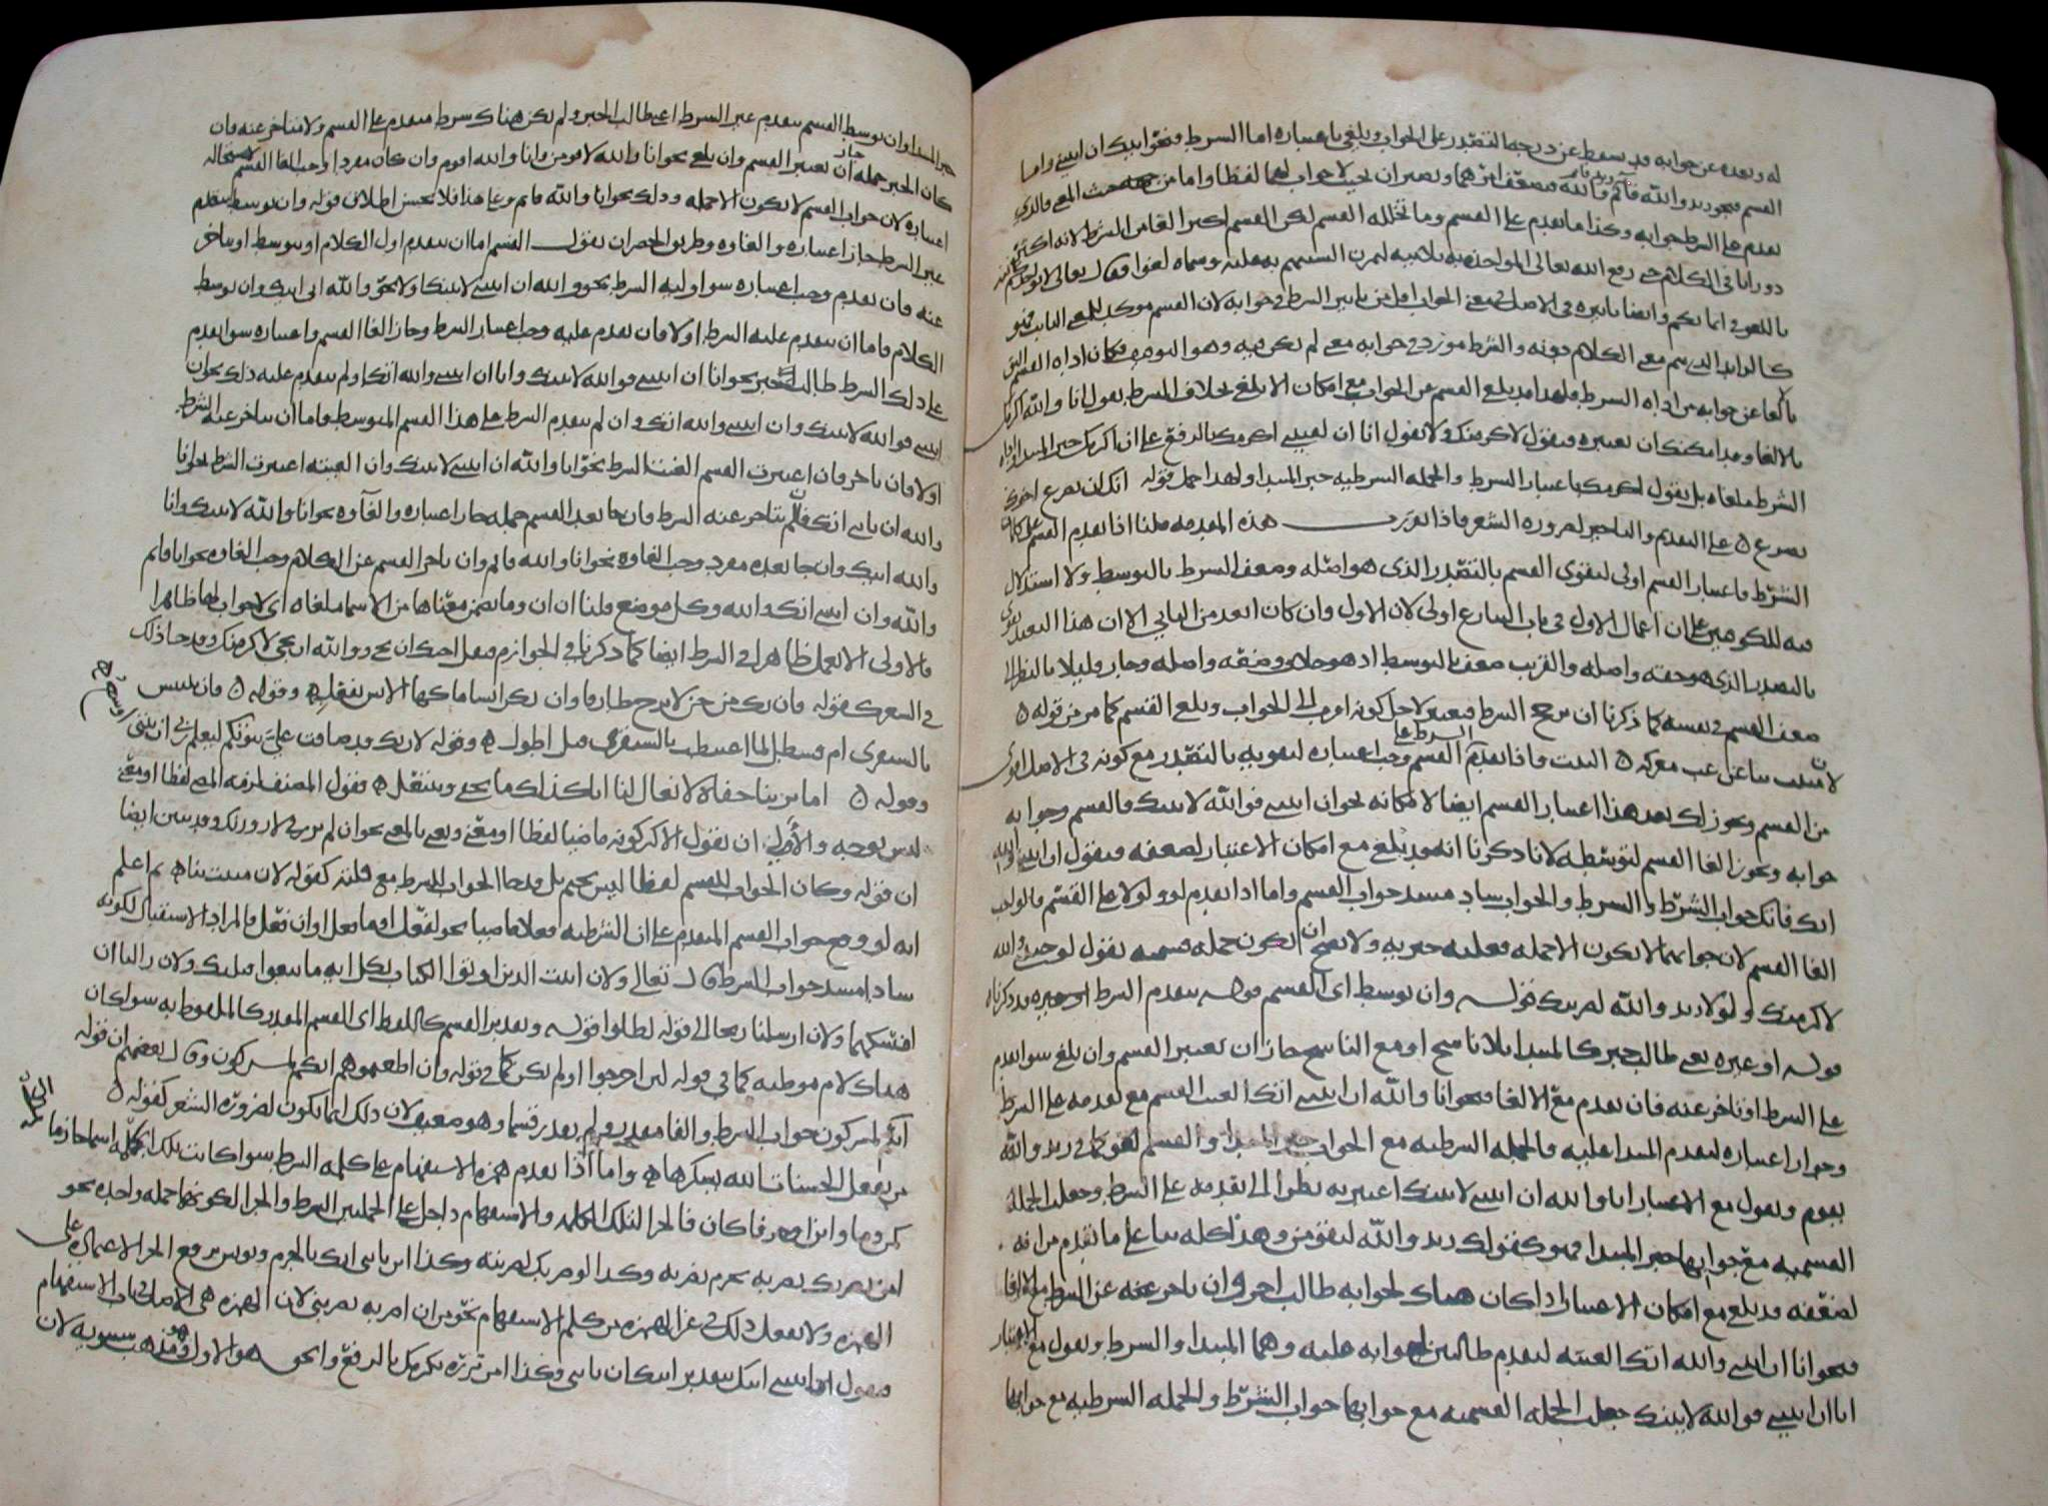 له وبعده عن جوابه قد سقط عن درجة التصدر على الجواب ويلغى باعتباره اما الشرط فنحو انك ان اتيتني واما
القسم فنحو زيد والله قائم وزيد قائم والله فضعف امرهما وتعين ان لا جواب لهما لفظا واما من حيث المعنى فالذي
تقدم على الشرط جوابه وكذا ما تقدم على القسم وما تخلله القسم لكن القسم اكثر الغاء من الشرط لانه اكثر
دورانا في الكلام حتى رفع الله تعالى المواخذة به بلا نية لتمرن السنتهم به وسماه لغوا فقال تعالى لا يواخذكم الله
باللغو في ايمانكم وايضا تاثيره في الاصل في معنى الجواب اقل من تاثير الشرط في جوابه لان القسم موكد للمعنى الثابت فهو
كالزائد الذي يتم معنى الكلام دونه والشرط مورد في جوابه معنى لم يكن فيه وهو التوقيف فكان اداة القسم
الغاء عن جوابه من اداة الشرط فلهذا قد يلغى القسم عن الجواب مع امكان الا يلغى بخلاف الشرط تقول انا والله اكرمك
بالالغاء وقد امكنك ان تعتبره فتقول لاكرمنك ولا تقول انا ان لقيتني اكرمك بالرفع على ان اكرمك خبر المبتدا واداة
الشرط ملغاة بل تقول اكرمك باعتبار الشرط والجملة الشرطية خبر المبتدا ولهذا حمل قوله انك ان يصرع اخوك
تصرع على التقديم والتاخير لضرورة الشعر فاذا تقرر هذه المقدمة قلنا اذا تقدم القسم على كلمة
الشرط فاعتبار القسم اولى لتقوى القسم بالتصدر الذي هو اصله وضعف الشرط بالتوسط ولا استدلال
فيه للكوفيين على ان اعمال الاول في باب التنازع اولى لان الاول وان كان ابعد من الثاني الا ان هذا البعيد تقوى
بالتصدر الذي هو حقه واصله والقريب ضعف بالتوسط اذ هو خلاف وضعه واصله وجاز قليلا بالنظر الى
ضعف القسم في نفسه كما ذكرنا ان يرجح الشرط فيعتبر لاجل كونه اقرب الى الجواب ويلغى القسم كما مر من قوله
لان منيت بنا عن غب معركة البيت واذا تقدم الشرط على القسم وجب اعتباره لتقويه بالتصدر مع كونه في الاصل اقوى
من القسم ويجوز لك بعد هذا اعتبار القسم ايضا لامكانه نحو ان اتيتني فوالله لاتينك فالقسم وجوابه
جوابه ويجوز الغاء القسم لتوسطه لانا ذكرنا انه قد يلغى مع امكان الاعتبار لضعفه فتقول ان اتيتني والله
اتك فاتك جواب الشرط والشرط والجواب ساد مسد جواب القسم واما اذا تقدم لو ولولا على القسم فالواجب
الغاء القسم لان جوابهما لا يكون الا جملة فعلية خبرية ولا يصح ان يكون جملة قسمية تقول لو جئتني والله
لاكرمتك ولولا زيد والله لضربتك قوله وان توسط اي القسم قوله بتقدم الشرط او غيره قد ذكرناه
قوله او غيره يعني طالب خبر كالمبتدا بلا ناسخ او مع الناسخ جاز ان يعتبر القسم وان يلغى سوا تقدم
على الشرط او تاخر عنه فان تقدم مع الالغا فنحو انا والله ان اتيتني اتك الغيت القسم مع تقدمه على الشرط
وجواز اعتباره لتقدم المبتدا عليه والجملة الشرطية مع الجواب خبر المبتدا والقسم لغو كما في زيد والله
يقوم وتقول مع الاعتبار انا والله ان اتيتني لاتينك اعتبرته نظرا الى تقدمه على الشرط وجعلت الجملة
القسمية مع جوابها خبر المبتدا فهو كقولك زيد والله ليقومن وهذا كله بناء على ما تقدم من انه
لضعفه قد يلغى مع امكان الاعتبار اذا كان هناك لجوابه طالب اخر وان تاخر عنه عن الشرط مع الالغا
فنحو انا ان اتيتني والله اتك الغيته لتقدم طالبين لجوابه عليه وهما المبتدا والشرط وتقول مع الاعتبار
انا ان اتيتني فوالله لاتينك جعلت الجملة القسمية مع جوابها جواب الشرط والجملة الشرطية مع جوابها
خبر المبتدا وان توسط القسم بتقدم غير الشرط اعني طالب الخبر ولم يكن هناك شرط متقدم على القسم ولا متاخر عنه فان
كان الخبر جملة جاز ان تعتبر القسم وان تلغي نحو انا والله لاقومن وانا والله اقوم وان كان مفردا وجب الغا القسم لاستحالة
اعتباره لان جواب القسم لا يكون الا جملة وذلك نحو انا والله قائم وعلى هذا فلا يحسن اطلاق قوله وان توسط بتقدم
غير الشرط جاز اعتباره والغاوه وطريق الحصر ان تقول القسم اما ان يتقدم اول الكلام او يتوسط او يتاخر
عنه فان تقدم وجب اعتباره سوا وليه الشرط نحو والله ان اتيتني لاتينك او لا نحو والله اني اتيك وان توسط
الكلام فاما ان يتقدم عليه الشرط او لا فان تقدم عليه وجب اعتبار الشرط وجاز الغا القسم واعتباره سوا تقدم
على ذلك الشرط طالب خبر نحو انا ان اتيتني فوالله لاتينك وانا ان اتيتني والله اتك او لم يتقدم عليه ذلك نحو ان
اتيتني فوالله لاتينك وان اتيتني والله اتك وان لم يتقدم الشرط على هذا القسم المتوسط فاما ان يتاخر عنه الشرط
اولا فان تاخر فان اعتبرت القسم الغيت الشرط نحو انا والله ان اتيتني لاتينك وان الغيته اعتبرت الشرط نحو انا
والله ان تاتني اتك وان لم يتاخر عنه الشرط فان جا بعد القسم جملة جاز اعتباره والغاوه نحو انا والله لاتينك وانا
والله اتيك وان جا بعده مفرد وجب الغاوه نحو انا والله قائم وان تاخر القسم عن الكلام وجب الغاوه نحو انا قائم
والله وان اتيتني اتك والله وكل موضع قلنا ان ان وما تضمن معناها من الاسما ملغاة اي لا جواب لها ظاهرا
فالاولى الا تعمل ظاهرا في الشرط ايضا كما ذكرنا في الجوازم
في الشعر كقوله فان يك من جن لابرح طارقا وان يك انسا ماكها الانس تفعل وقوله فان تبتئس
بالشنفرى ام قسطل لما اغتبطت بالشنفرى قبل اطول وقوله لان تك قد ضاقت عليكم بيوتكم ليعلم ربي ان بيتي واسع
وقوله اما ترينا حفاة لا نعال لنا انا كذلك ما نحفى وننتعل فقول المصنف لزمه المضي لفظا او معنى
ليس بوجه والاولى ان يقول الاكثر كونه ماضيا لفظا او معنى ويعني بالمعنى نحو ان لم تزرني لازورنك وقد تبين ايضا
ان قوله وكان الجواب للقسم لفظا ليس بحتم بل قد جا الجواب للشرط مع قلته كقوله لان منيت بنا ثم اعلم
انه لو وقع جواب القسم المتقدم على ان الشرطية فعلا ماضيا نحو لفعل او ما فعل او ان فعل فالمراد الاستقبال لكونه
سادا مسد جواب الشرط قال تعالى ولان اتيت الذين اوتوا الكتاب بكل اية ما تبعوا قبلتك ولان زالتا ان
امسكهما ولان ارسلنا ريحا الى قوله لظلوا قوله وتقدير القسم كاللفظ اي القسم المقدر كالملفوظ به سوا كان
هناك لام موطية كما في قوله لئن اخرجوا او لم يكن كما في قوله وان اطعتموهم انكم لمشركون وقال بعضهم ان قوله
انكم لمشركون جواب الشرط والفا مقدرة ولم يقدر قسما وهو ضعيف لان ذلك انما يكون لضرورة الشعر كقوله
من يفعل الحسنات الله يشكرها واما اذا تقدم همزة الاستفهام على كلمة الشرط سوا كانت تلك الكلمة اسما جازما
كمن وما او ان فالجزا لتلك الكلمة والاستفهام داخل على الجملتين الشرط والجزا لكونهما جملة واحدة نحو
امن يضربك تضربه بجزم تضربه وكذا الو ضربك لضربته وكذا ان تاتني اتك بالجزم ويونس يرفع الجزا لاعتماده على
الهمزة ولا يفعل ذلك في غير الهمزة من كلم الاستفهام نحو من ان اضربه يضربني لان الهمزة هي الاصل في باب الاستفهام
فيقول اان اتيتني اتيك بتقدير اتيك ان تاتني وكذا امن تزره يكرمك بالرفع والحق هو الاول وهو مذهب سيبويه لان